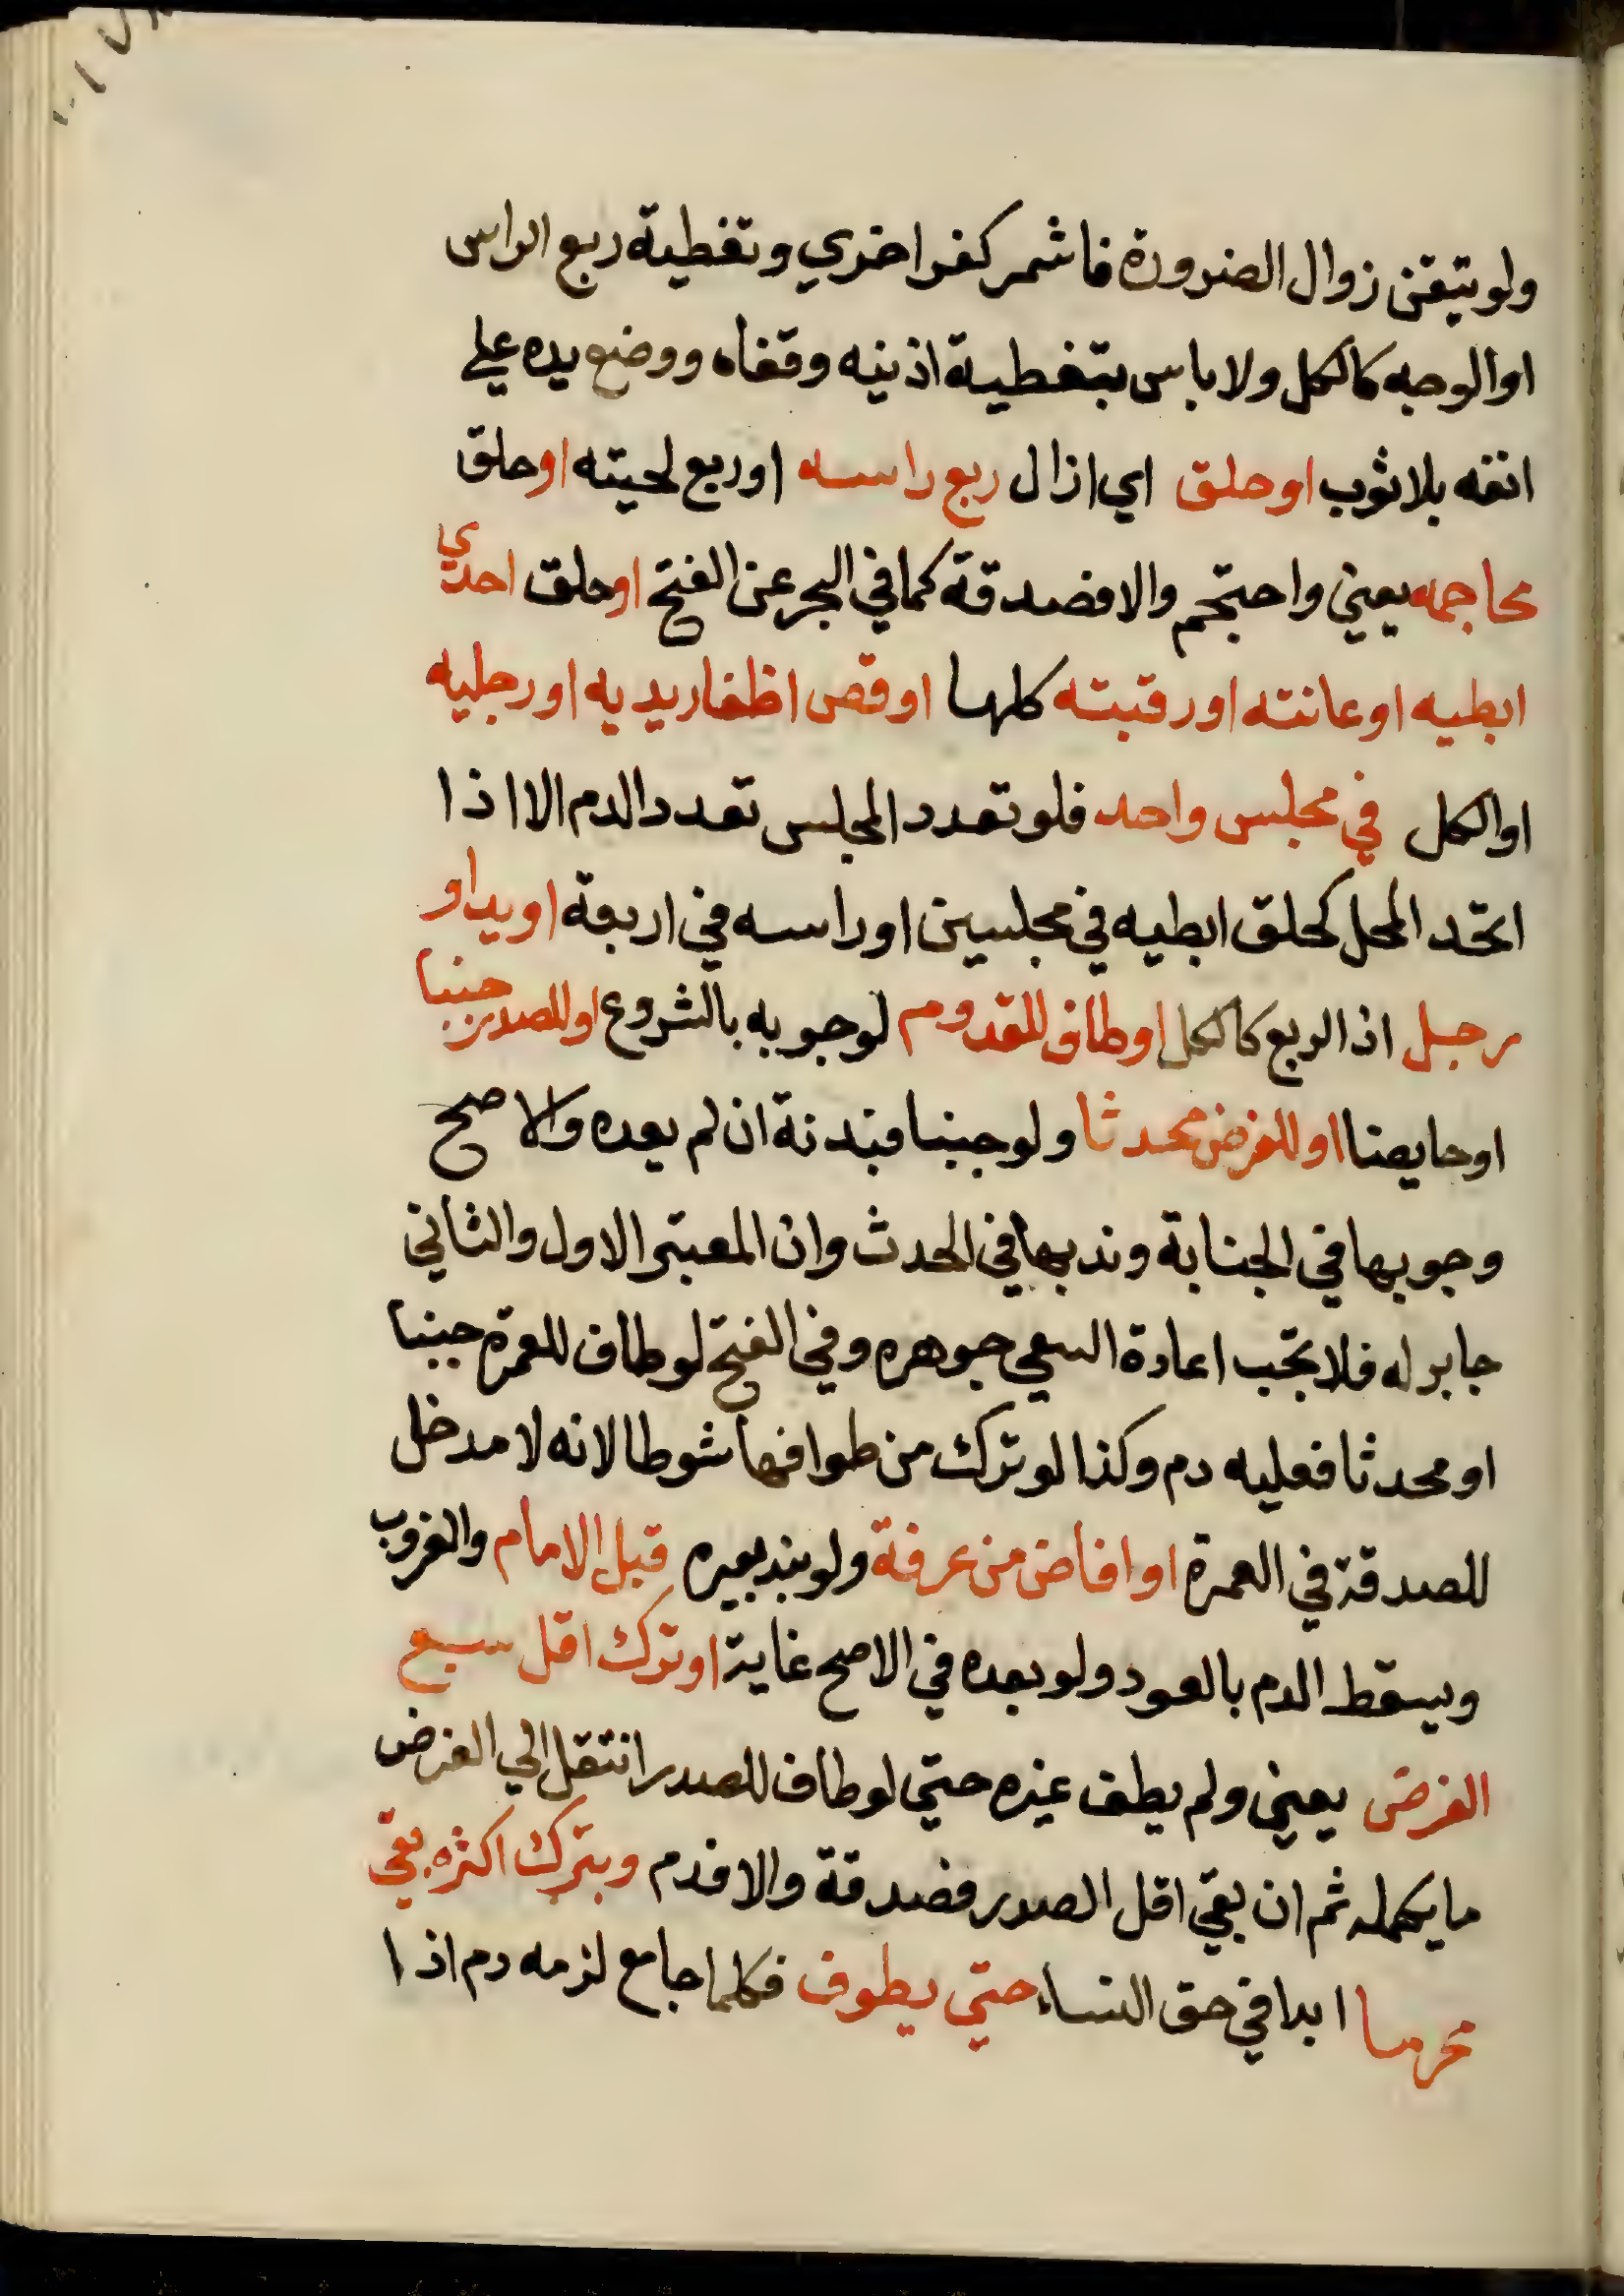 ولو تيقن زوال الضرورة فاستمر كفر اخري وتغطية ربع الراس
او الوجه كالكل ولا باس بتغطية اذنيه وقفاه ووضع يده علي
انفه بلا ثوب او حلق اي ازال ربع راسه او ربع لحيته او حلق
محاجمه يعني واحتجم والا فصدقة كما في البحر عن الفتح او حلق احدي
ابطيه او عانته او رقبته كلها او قص اظفار يديه او رجليه
او الكل في مجلس واحد فلو تعدد المجلس تعدد الدم الا اذا
اتحد المحل كحلق ابطيه في مجلسين او راسه في اربعة او يد او
رجل اذ الربع كالكل او طاف للقدوم لوجوبه بالشروع او للصدر جنبا
او حايضا او للفرض محدثا ولو جنبا فبدنة ان لم يعده والاصح
وجوبها في الجنابة وندبها في الحدث وان المعتبر الاول والثاني
جابر له فلا تجب اعادة السعي جوهره وفي الفتح لو طاف للعمرة جنبا
او محدثا فعليه دم وكذا لو ترك من طوافها شوطا لانه لا مدخل
للصدقة في العمرة او افاض من عرفة ولو بند بعيره قبل الامام والغروب
ويسقط الدم بالعود ولو بعده في الاصح غاية او ترك اقل سبع
الفرض يعني ولم يطف غيره حتي لو طاف للصدر انتقل الي الفرض
ما يكمله ثم ان بقي اقل الصدر فصدقة والا فدم وبترك اكثره بقي
محرما ابدا في حق النساء حتي يطوف فكلما جامع لزمه دم اذا